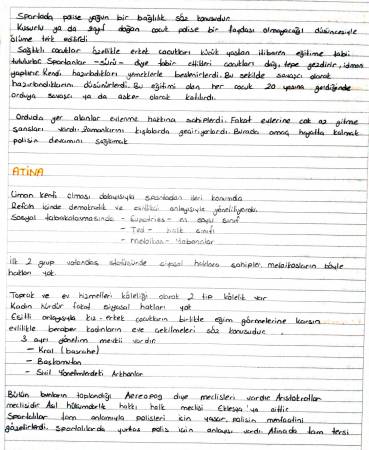 Spartada polise yoğun bir bağlılık söz konusudur
Kusurlu ya da sayı doğan çocuk polise bir faydası olmayacağı düşüncesiyle
ölüme terk edilirdi
Sağlıklı çocuklar özellikle erkek çocukları küçük yaştan itibaren eğitime tabi
tutulurlar Spartanlar -sürü- diye tabir ettikleri çocukları dağ, tepe gezdirir, idman
yaptırır. Kendi hazırladıkları yemeklerle beslenirlerdi. Bu şekilde savaşçı olarak
hazırlandıklarını düşünürlerdi. Bu eğitimi alan her çocuk 20 yaşına geldiğinde
orduya savaşçı ya da asker olarak katılırdı.
Orduda yer alanlar evlenme hakkına sahiplerdi. Fakat evlerine çok az gitme
şansları vardı. Zamanlarını kışlalarda geçiriyorlardı. Burada amaç hayatta kalmak
polisin devamını sağlamak
ATİNA
Liman kenti olması dolayısıyla spartadan ileri konumda
Refah içinde demokratik ve eşitlikçi anlayışıyla yönetiliyordu.
Sosyal tabakalaşmasında - Eupatries - en soylu sınıf
- Ted - halk sınıfı
- Metoikos - Yabancılar
ilk 2 grup vatandaş statüsünde siyasal haklara sahipler, metoikosların böyle
hakları yok.
Toprak ve ev hizmetleri köleliği olarak 2 tip kölelik var
Kadın hürdür fakat siyasal hakları yok
Eşitlik anlayışıyla kız-erkek çocukların birlikte eğitim görmelerine karşın
evlilikle beraber kadınların eve çekilmeleri söz konusudur.
3 ayrı yönetim mevkii vardır
- Kral (basrahe)
- Başkomutan
- Sivil Yönetimdeki Arkhonlar
Bütün bunların toplandığı Aeropag diye meclisleri vardır Aristokratlar
meclisidir. Asıl hükümdarlık hakkı halk meclisi Eklesya'ya aittir
Spartalılar tam anlamıyla polisleri için yaşar, polisin menfaatini
gözetirlerdi. Spartalılarda yurttaş polis için anlayışı vardı. Atinada tam tersi